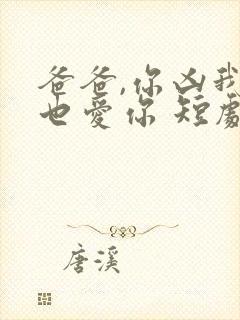 爸爸,你凶我
也爱你 短剧
唐溪